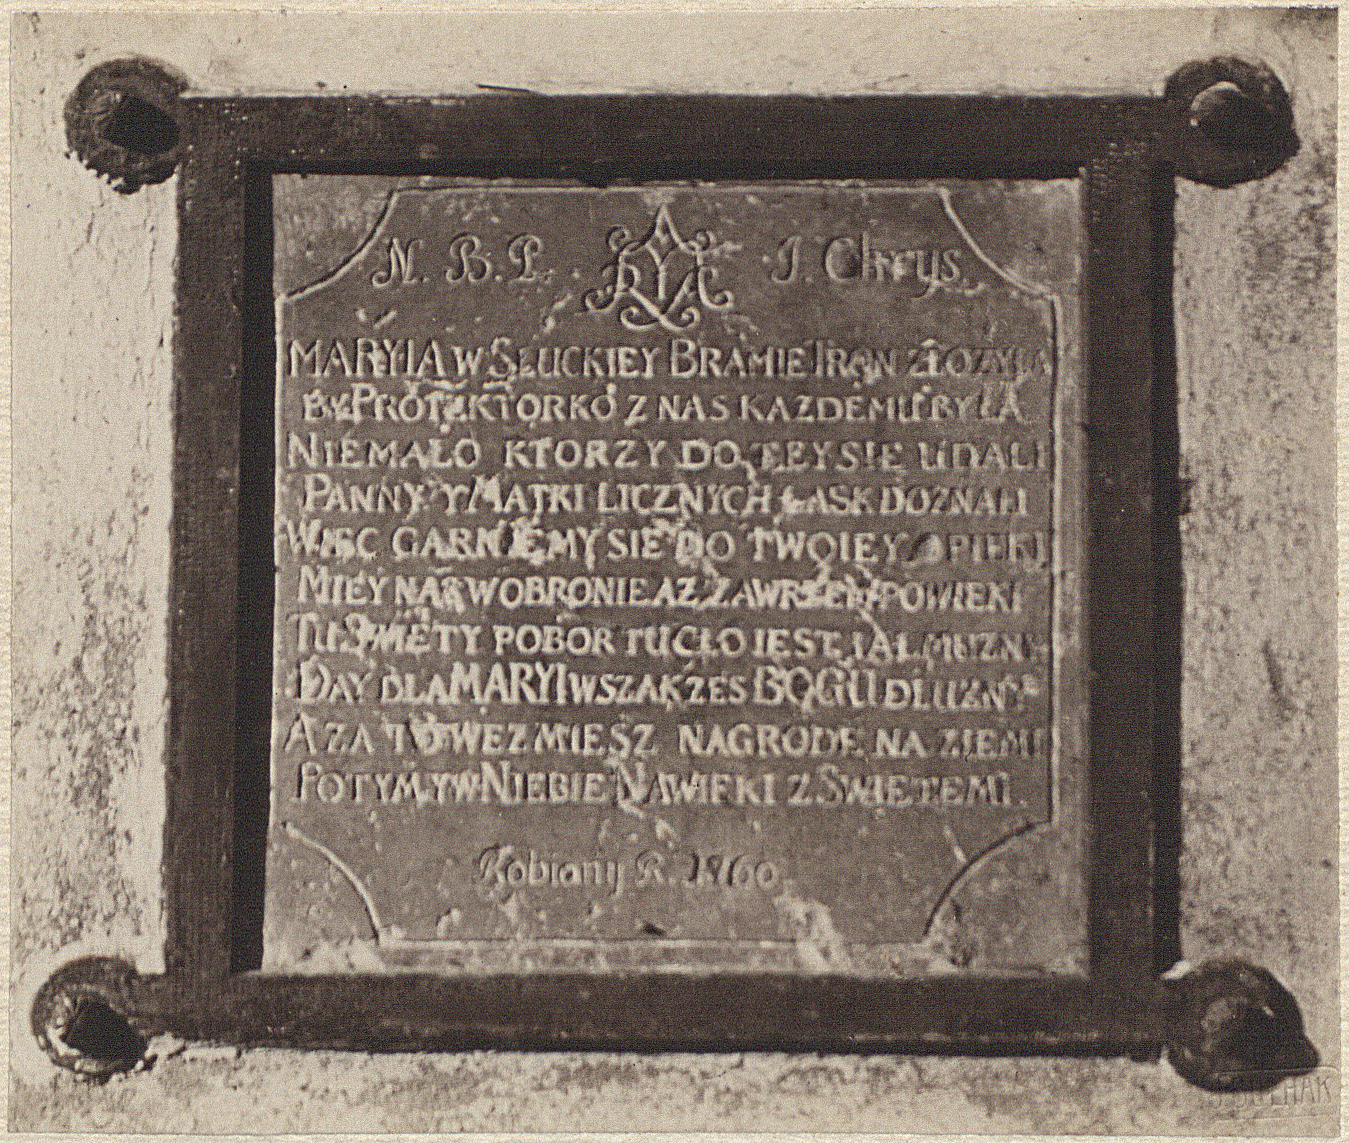 N. B. P. MARYA J. Chrys.
MARYIA W SŁUCKIEY BRAMIE TRON ZŁOZYŁA
BY PROTEKTORKO Z NAS KAZDEMU BYŁA
NIEMAŁO KTORZY DO CIEBY SIE UDALI
PANNY Y MATKI LICZNYCH ŁASK DOZNALI
WIĘC GARNIEMY SIE DO TWOIEY OPIEKI
MIEY NAS W OBRONIE AZ ZAWRZEM POWIEKI
TU SWIETY POBOR TU CŁO IEST IAŁMUZNY
DAY DLA MARYI WSZAKZES BOGU DŁUZNY
A ZA TO WEZMIESZ NAGRODE NA ZIEMI
POTYM YW NIEBIE NA WIEKI Z SWIETEMI.
Robiony R. 1760
J. BUŁHAK